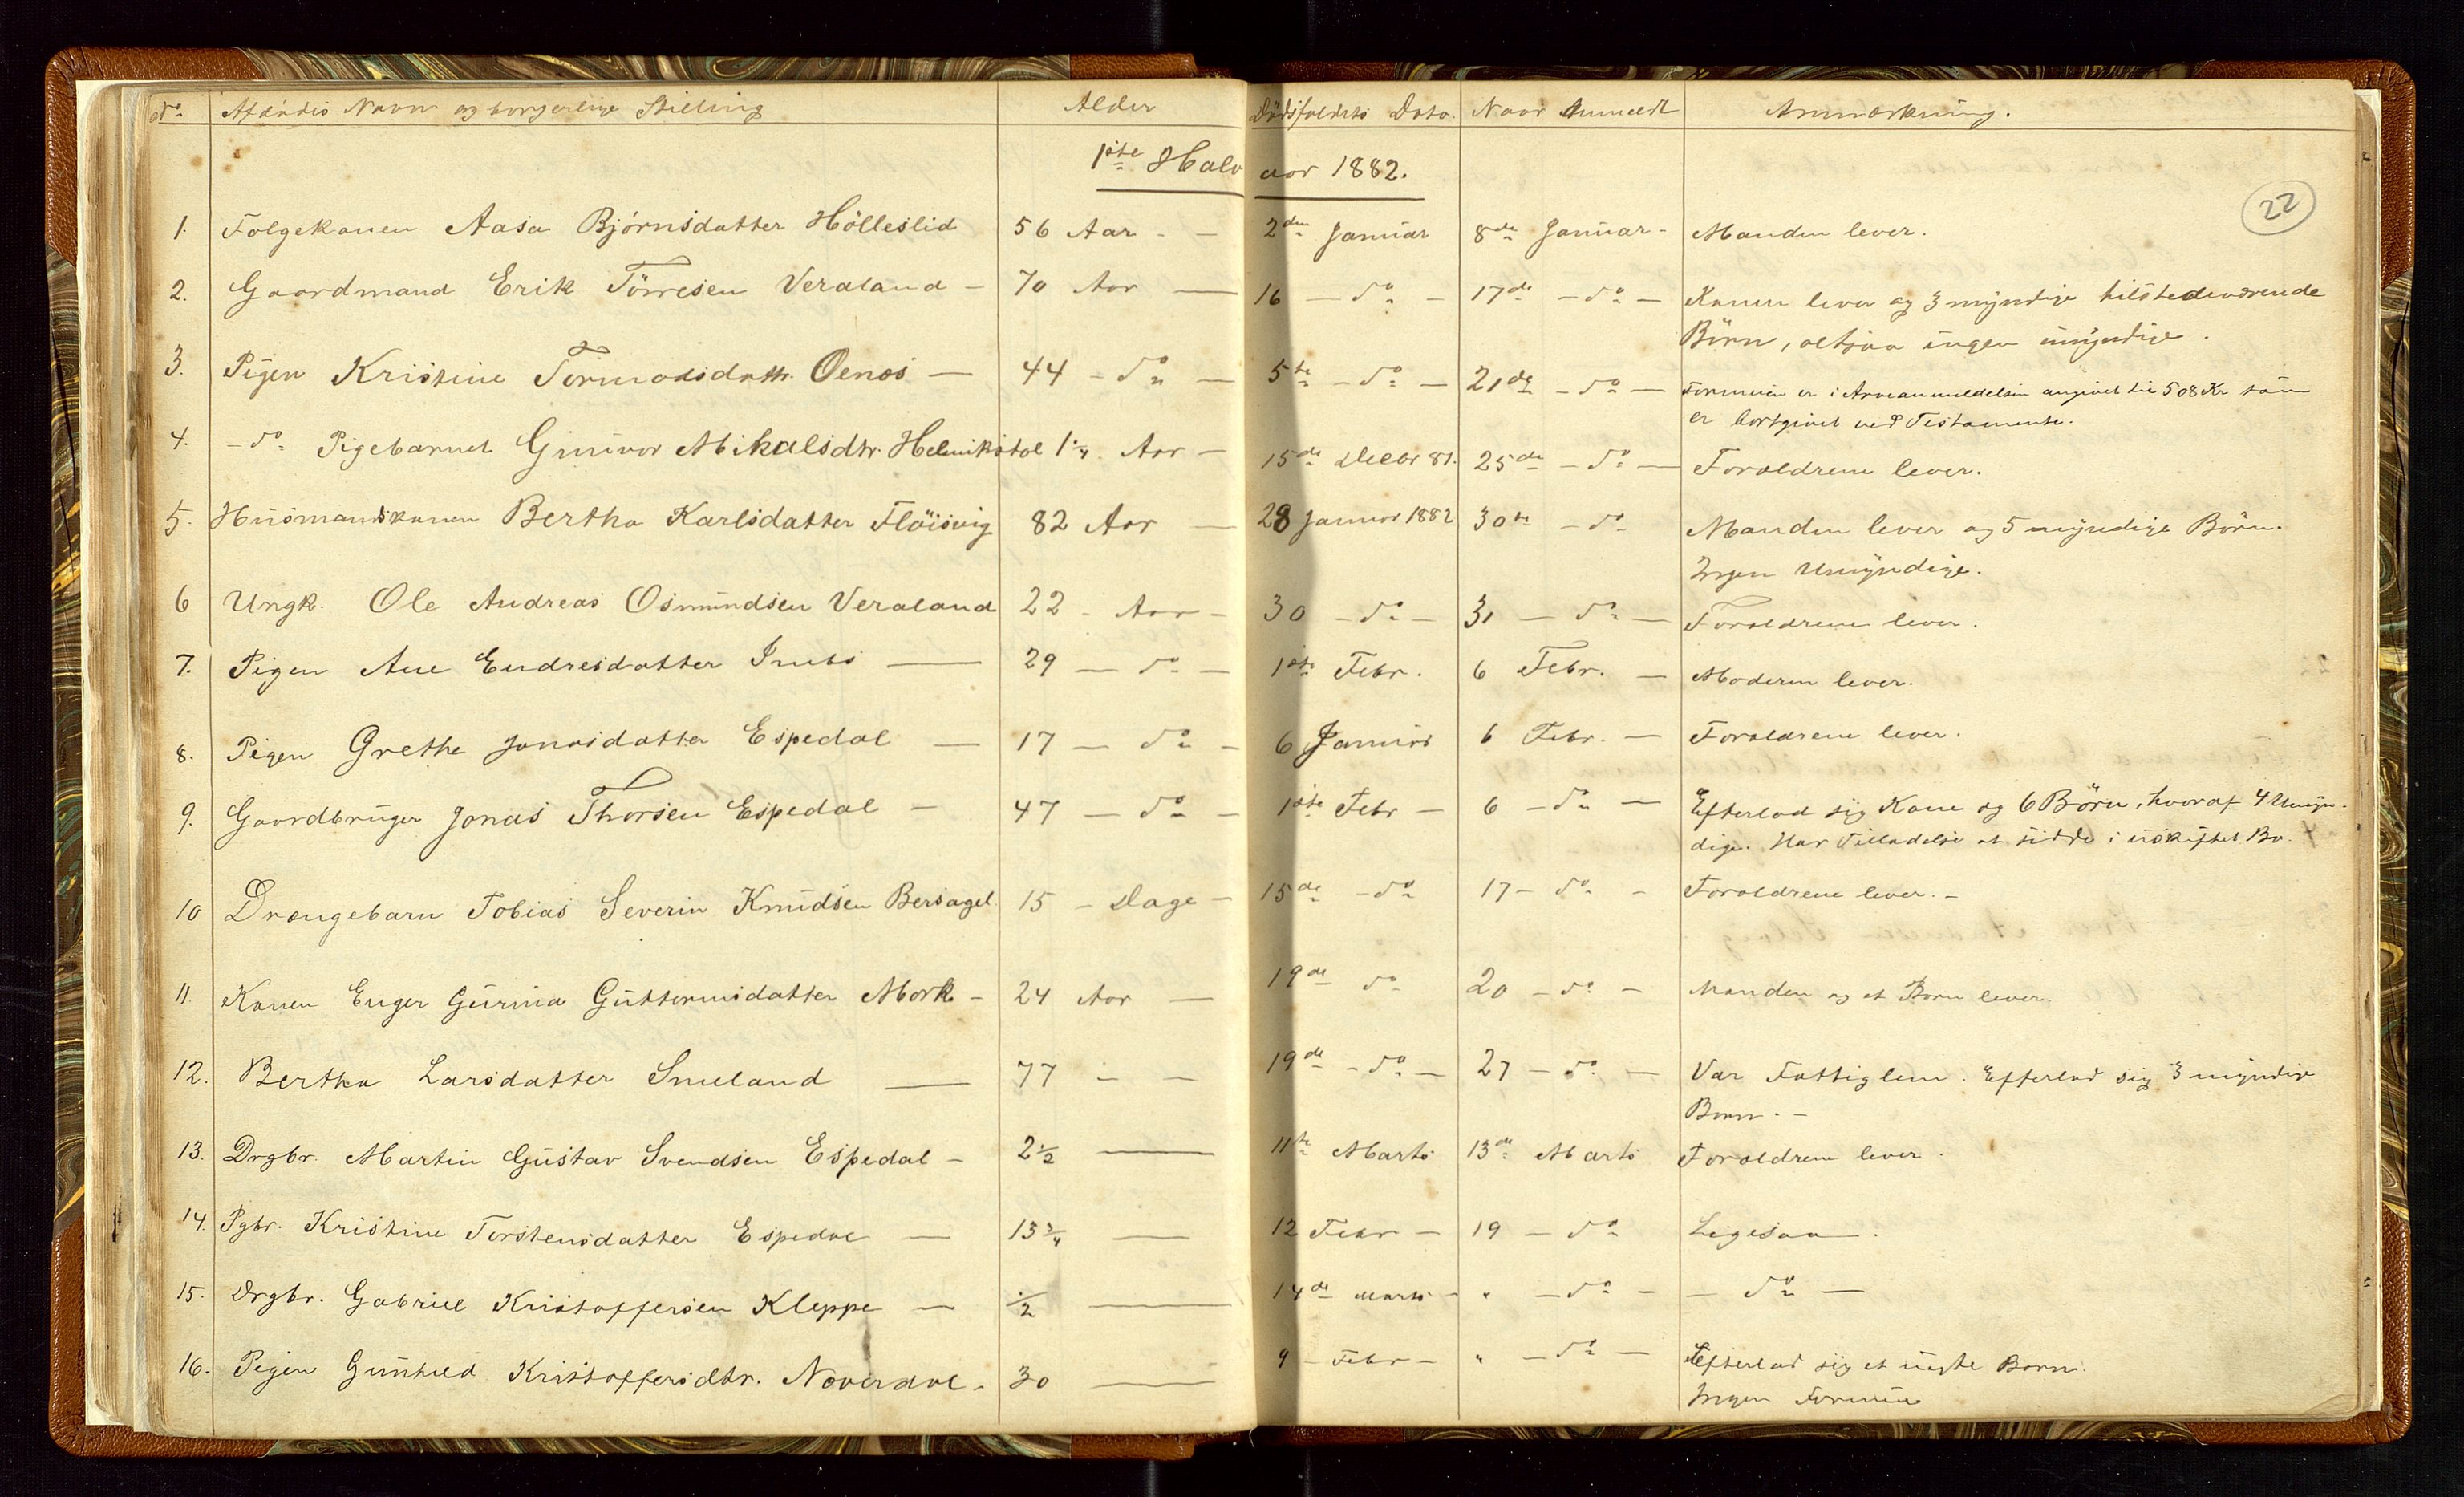 No. Afdødes Navn og borgerlige Stilling Alder Dödsfaldets Dato. Naar Anmeldt Anmærkning.
1ste Halv aar 1882.
22
1. Folgekonen Aasa Björnsdatter Hölleslid 56 Aar - - 2den Januar 8de Januar - Manden lever.
2. Gaardmand Erik Törresen Veraland - 70 Aar — 16 - do - 17de - do - Konen lever og 3 myndige tilstedeværende
Börn, altsaa ingen umyndige.
3. Pigen Kristine Tormodsdattr. Oenæs — 44 - do - 5te - do - 21de - do - Formuen er i Arveanmeldelsen angivet til 508 Kr som
er bortgivet ved Testamente.
4. - do Pigebarnet Gunvor Mikalsdtr. Helmikstöl 1 1/4 Aar - 15de Decbr 81. 25de - do - Forældrene lever.
5. Husmandskonen Bertha Karlsdatter Flöisvig 82 Aar — 28 Januar 1882 30te - do Manden lever og 5 myndige Börn.
Ingen Umyndige.
6 Ungk. Ole Andreas Osmundsen Veraland 22 - Aar - 30 - do - 31 - do - Forældrene lever.
7. Pigen Ane Endresdatter — 29 - do - 1ste Febr. 6 Febr. - Moderen lever.
8. Pigen Grethe Jonasdatter Espedal — 17 - do - 6 Januar 6 Febr. - Forældrene lever.
9. Gaardbruger Jonas Thorsen Espedal — 47 - do - 1ste Febr - 6 - do - Efterlod sig Kone og 6 Börn, hvoraf 4 Umyn-
dige. Har Tilladelse at sidde i uskiftet Bo.
10 Drængebarn Tobias Severin Knudsen Bersagel. 15 - Dage - 15de - do 17 - do - Forældrene lever. -
11. Konen Enger Gurina Guttormsdatter Mork - 24 Aar — 19de do 20 - do - Manden og et Barn lever.
12. Bertha Larsdatter Smeland — 77 - - 19de - do - 27 - do - Var Fattiglem. Efterlod sig 3 myndige
Børn. -
13. Drgbr. Martin Gustav Svendsen Espedal - 2 1/2 — 11te Marts 13de Marts Forældrene lever.
14. Pgbr. Kristine Torstensdatter Espedal — 13 3/4 — 12 Febr - 19 - do Ligesaa.
15. Drgbr. Gabriel Kristoffersen Kleppe — 1/2 — 14de Marts - " - do - - do -
16. Pigen Gunhild Kristoffersdtr. Næverdal - 30 — 9 - Febr - " - do - Efterlod sig et uægte Barn.
Ingen Formue